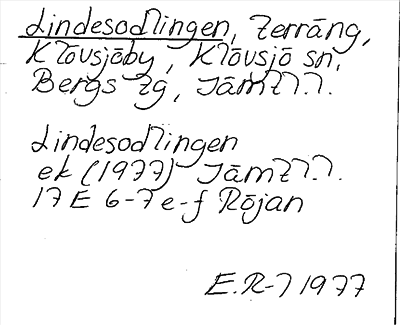 Lindesodlingen, Terräng,
Klövsjöby, Klövsjö sn,
Bergs tg, Jämtl.
Lindesodlingen
ek (1977) Jämtl.
17 E 6-7 e-f Röjan
E.R-l 1977